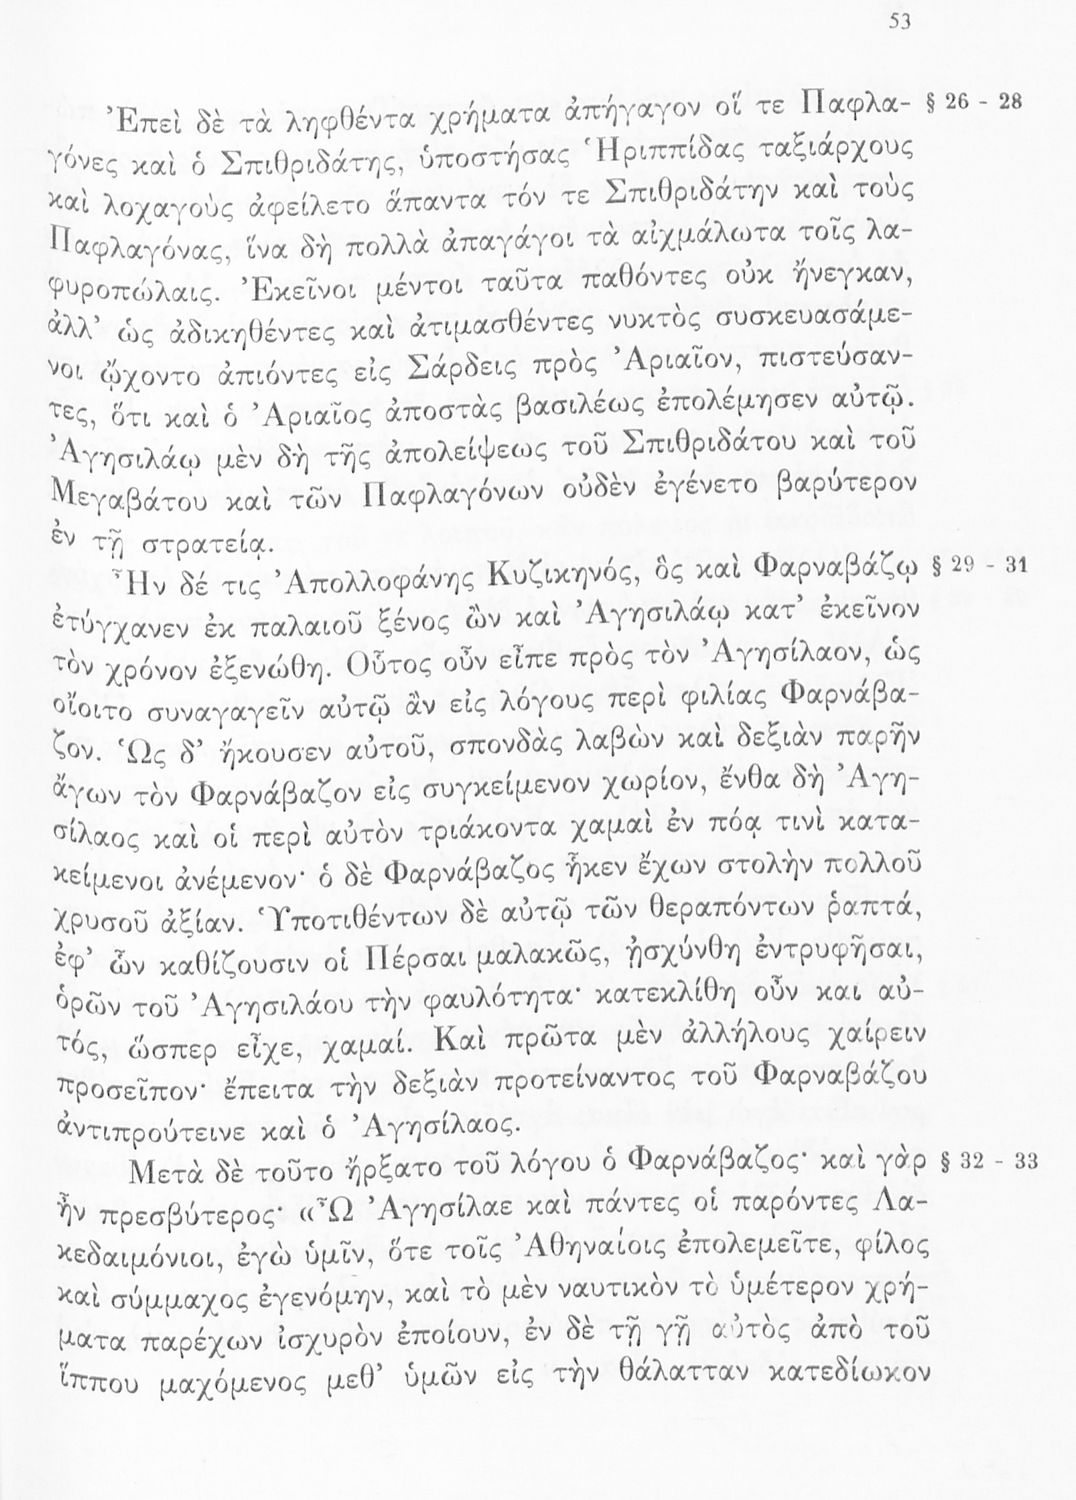 53
Ἐπεὶ δὲ τὰ ληφθέντα χρήματα ἀπήγαγον οἵ τε Παφλα- § 26 - 28
γόνες καὶ ὁ Σπιθριδάτης, ὑποστήσας Ἡριππίδας ταξιάρχους
καὶ λοχαγοὺς ἀφείλετο ἅπαντα τόν τε Σπιθριδάτην καὶ τοὺς
Παφλαγόνας, ἵνα δὴ πολλὰ ἀπαγάγοι τὰ αἰχμάλωτα τοῖς λα-
φυροπώλαις. Ἐκεῖνοι μέντοι ταῦτα παθόντες οὐκ ἤνεγκαν,
ἀλλ’ ὡς ἀδικηθέντες καὶ ἀτιμασθέντες νυκτὸς συσκευασάμε-
νοι ᾤχοντο ἀπιόντες εἰς Σάρδεις πρὸς Ἀριαῖον, πιστεύσαν-
τες, ὅτι καὶ ὁ Ἀριαῖος ἀποστὰς βασιλέως ἐπολέμησεν αὐτῷ.
Ἀγησιλάῳ μὲν δὴ τῆς ἀπολείψεως τοῦ Σπιθριδάτου καὶ τοῦ
Μεγαβάτου καὶ τῶν Παφλαγόνων οὐδὲν ἐγένετο βαρύτερον
ἐν τῇ στρατείᾳ.
Ἦν δέ τις Ἀπολλοφάνης Κυζικηνός, ὃς καὶ Φαρναβάζῳ § 29 - 31
ἐτύγχανεν ἐκ παλαιοῦ ξένος ὢν καὶ Ἀγησιλάῳ κατ’ ἐκεῖνον
τὸν χρόνον ἐξενώθη. Οὗτος οὖν εἶπε πρὸς τὸν Ἀγησίλαον, ὡς
οἴοιτο συναγαγεῖν αὐτῷ ἂν εἰς λόγους περὶ φιλίας Φαρνάβα-
ζον. Ὡς δ’ ἤκουσεν αὐτοῦ, σπονδὰς λαβὼν καὶ δεξιὰν παρῆν
ἄγων τὸν Φαρνάβαζον εἰς συγκείμενον χωρίον, ἔνθα δὴ Ἀγη-
σίλαος καὶ οἱ περὶ αὐτὸν τριάκοντα χαμαὶ ἐν πόᾳ τινὶ κατα-
κείμενοι ἀνέμενον· ὁ δὲ Φαρνάβαζος ἧκεν ἔχων στολὴν πολλοῦ
χρυσοῦ ἀξίαν. Ὑποτιθέντων δὲ αὐτῷ τῶν θεραπόντων ῥαπτά,
ἐφ’ ὧν καθίζουσιν οἱ Πέρσαι μαλακῶς, ᾐσχύνθη ἐντρυφῆσαι,
ὁρῶν τοῦ Ἀγησιλάου τὴν φαυλότητα· κατεκλίθη οὖν και αὐ-
τός, ὥσπερ εἶχε, χαμαί. Καὶ πρῶτα μὲν ἀλλήλους χαίρειν
προσεῖπον· ἔπειτα τὴν δεξιὰν προτείναντος τοῦ Φαρναβάζου
ἀντιπρούτεινε καὶ ὁ Ἀγησίλαος.
Μετὰ δὲ τοῦτο ἤρξατο τοῦ λόγου ὁ Φαρνάβαζος· καὶ γὰρ § 32 - 33
ἦν πρεσβύτερος· «Ὦ Ἀγησίλαε καὶ πάντες οἱ παρόντες Λα-
κεδαιμόνιοι, ἐγὼ ὑμῖν, ὅτε τοῖς Ἀθηναίοις ἐπολεμεῖτε, φίλος
καὶ σύμμαχος ἐγενόμην, καὶ τὸ μὲν ναυτικὸν τὸ ὑμέτερον χρή-
ματα παρέχων ἰσχυρὸν ἐποίουν, ἐν δὲ τῇ γῇ αὐτὸς ἀπὸ τοῦ
ἵππου μαχόμενος μεθ’ ὑμῶν εἰς τὴν θάλατταν κατεδίωκον